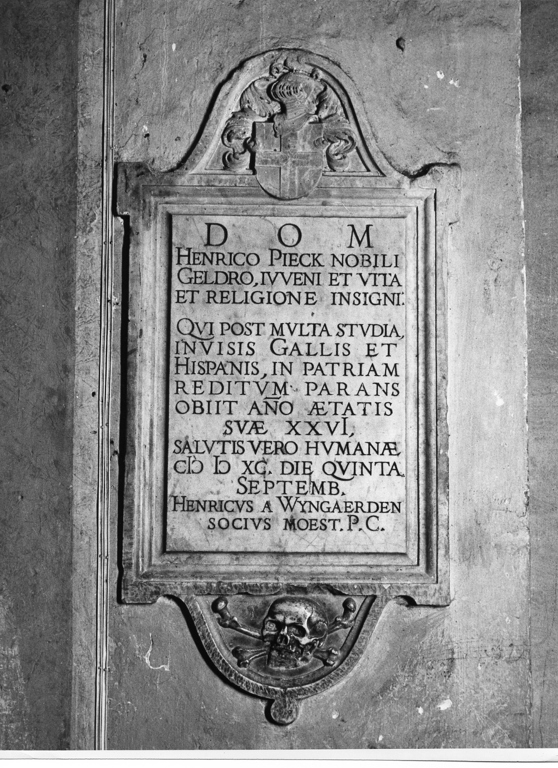 D O M
HENRICO PIECK NOBILI
GELDRO, IVVENI ET VITA
ET RELIGIONE INSIGNI.
QVI POST MVLTA STVDIA,
INVISIS GALLIS ET
HISPANIS, IN PATRIAM
REDITVM PARANS
OBIIT AÑO ÆTATIS
SVÆ XXVI,
SALVTIS VERO HVMANÆ
CIↃ IↃ XC. DIE QVINTA
SEPTEMB.
HENRICVS A WYNGAERDEN
SOCIVS MOEST. P.C.